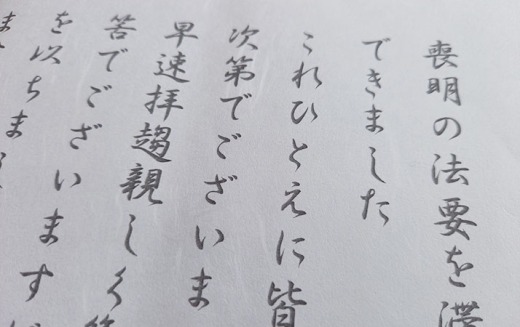 喪明の法要を滞
できました
これひとえに皆
次第でございま
早速拝趨親しく
筈でございますが
を以ちま